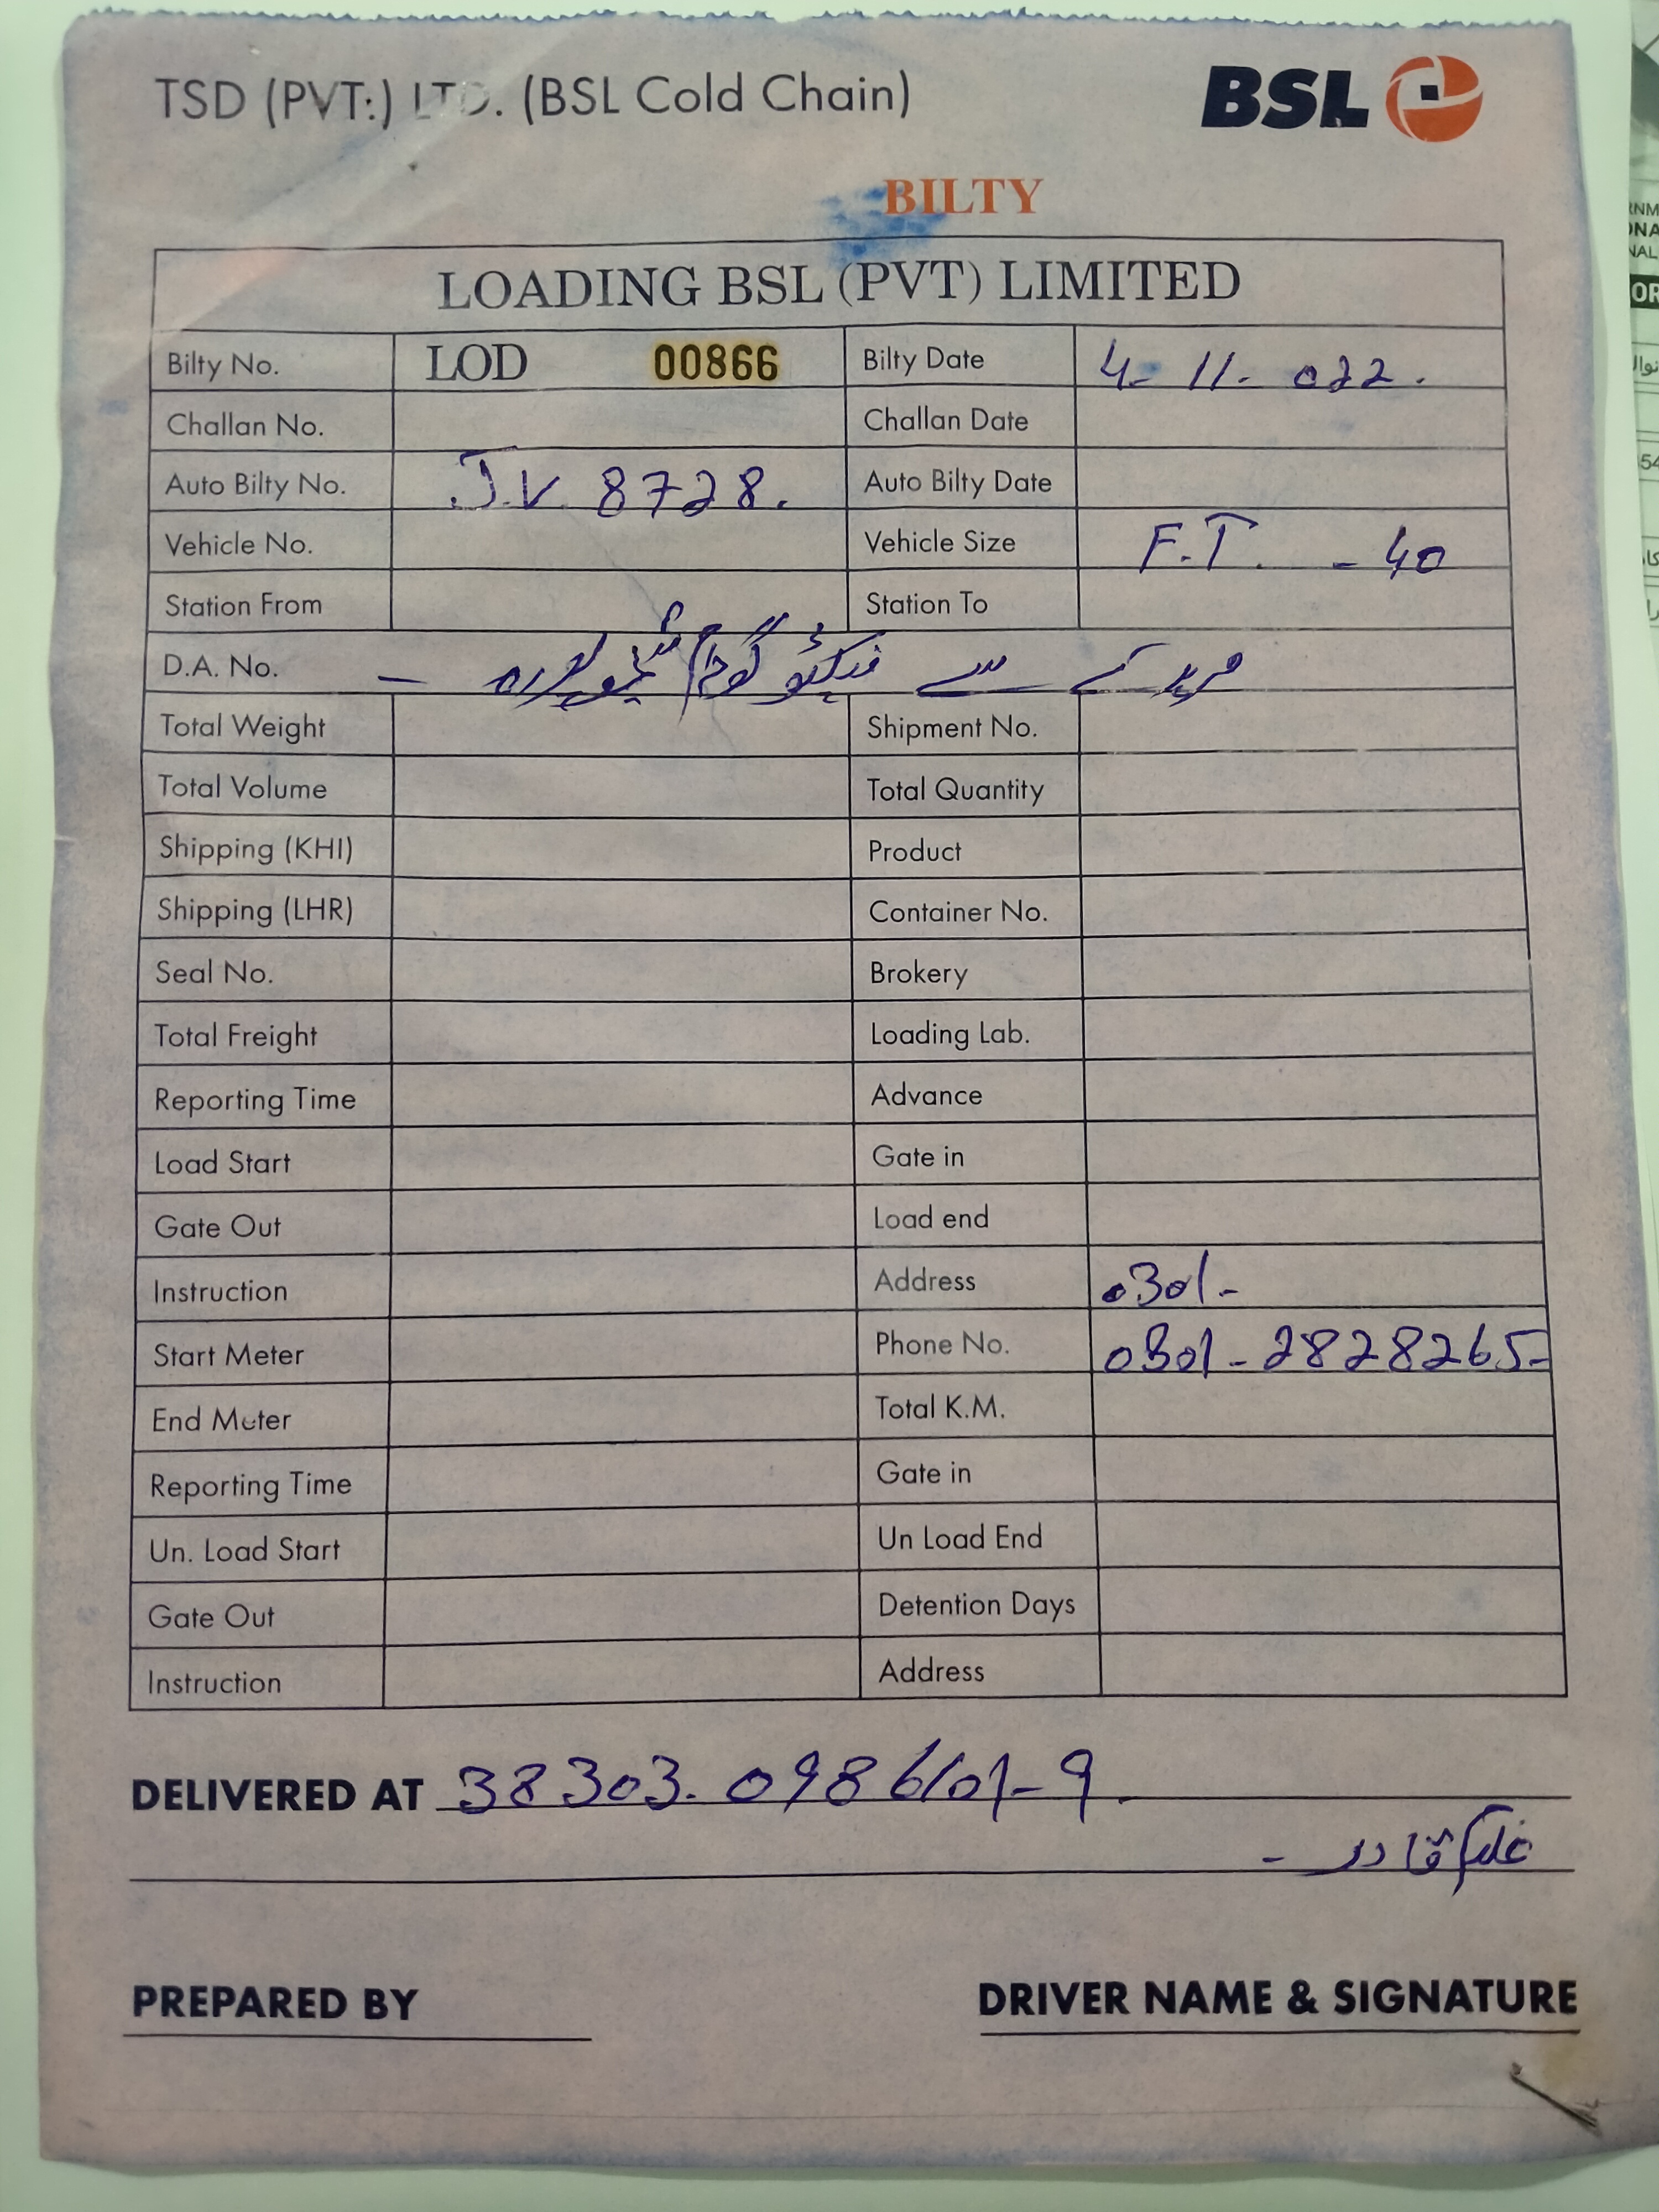 TSD (PVT:) LTD. (BSL Cold Chain) BSL
BILTY
LOADING BSL (PVT) LIMITED
Bilty No. LOD 00866 Bilty Date 4- 11- 022.
Challan No. Challan Date
Auto Bilty No. J.V. 8728. Auto Bilty Date
Vehicle No. Vehicle Size F.T. - 40
Station From Station To
D.A. No. سے
Total Weight Shipment No.
Total Volume Total Quantity
Shipping (KHI) Product
Shipping (LHR) Container No.
Seal No. Brokery
Total Freight Loading Lab.
Reporting Time Advance
Load Start Gate in
Gate Out Load end
Instruction Address 0301-
Start Meter Phone No. 0301-2828265-
End Meter Total K.M.
Reporting Time Gate in
Un. Load Start Un Load End
Gate Out Detention Days
Instruction Address
DELIVERED AT 38303.0986101-9.
غلام قادر -
PREPARED BY DRIVER NAME & SIGNATURE